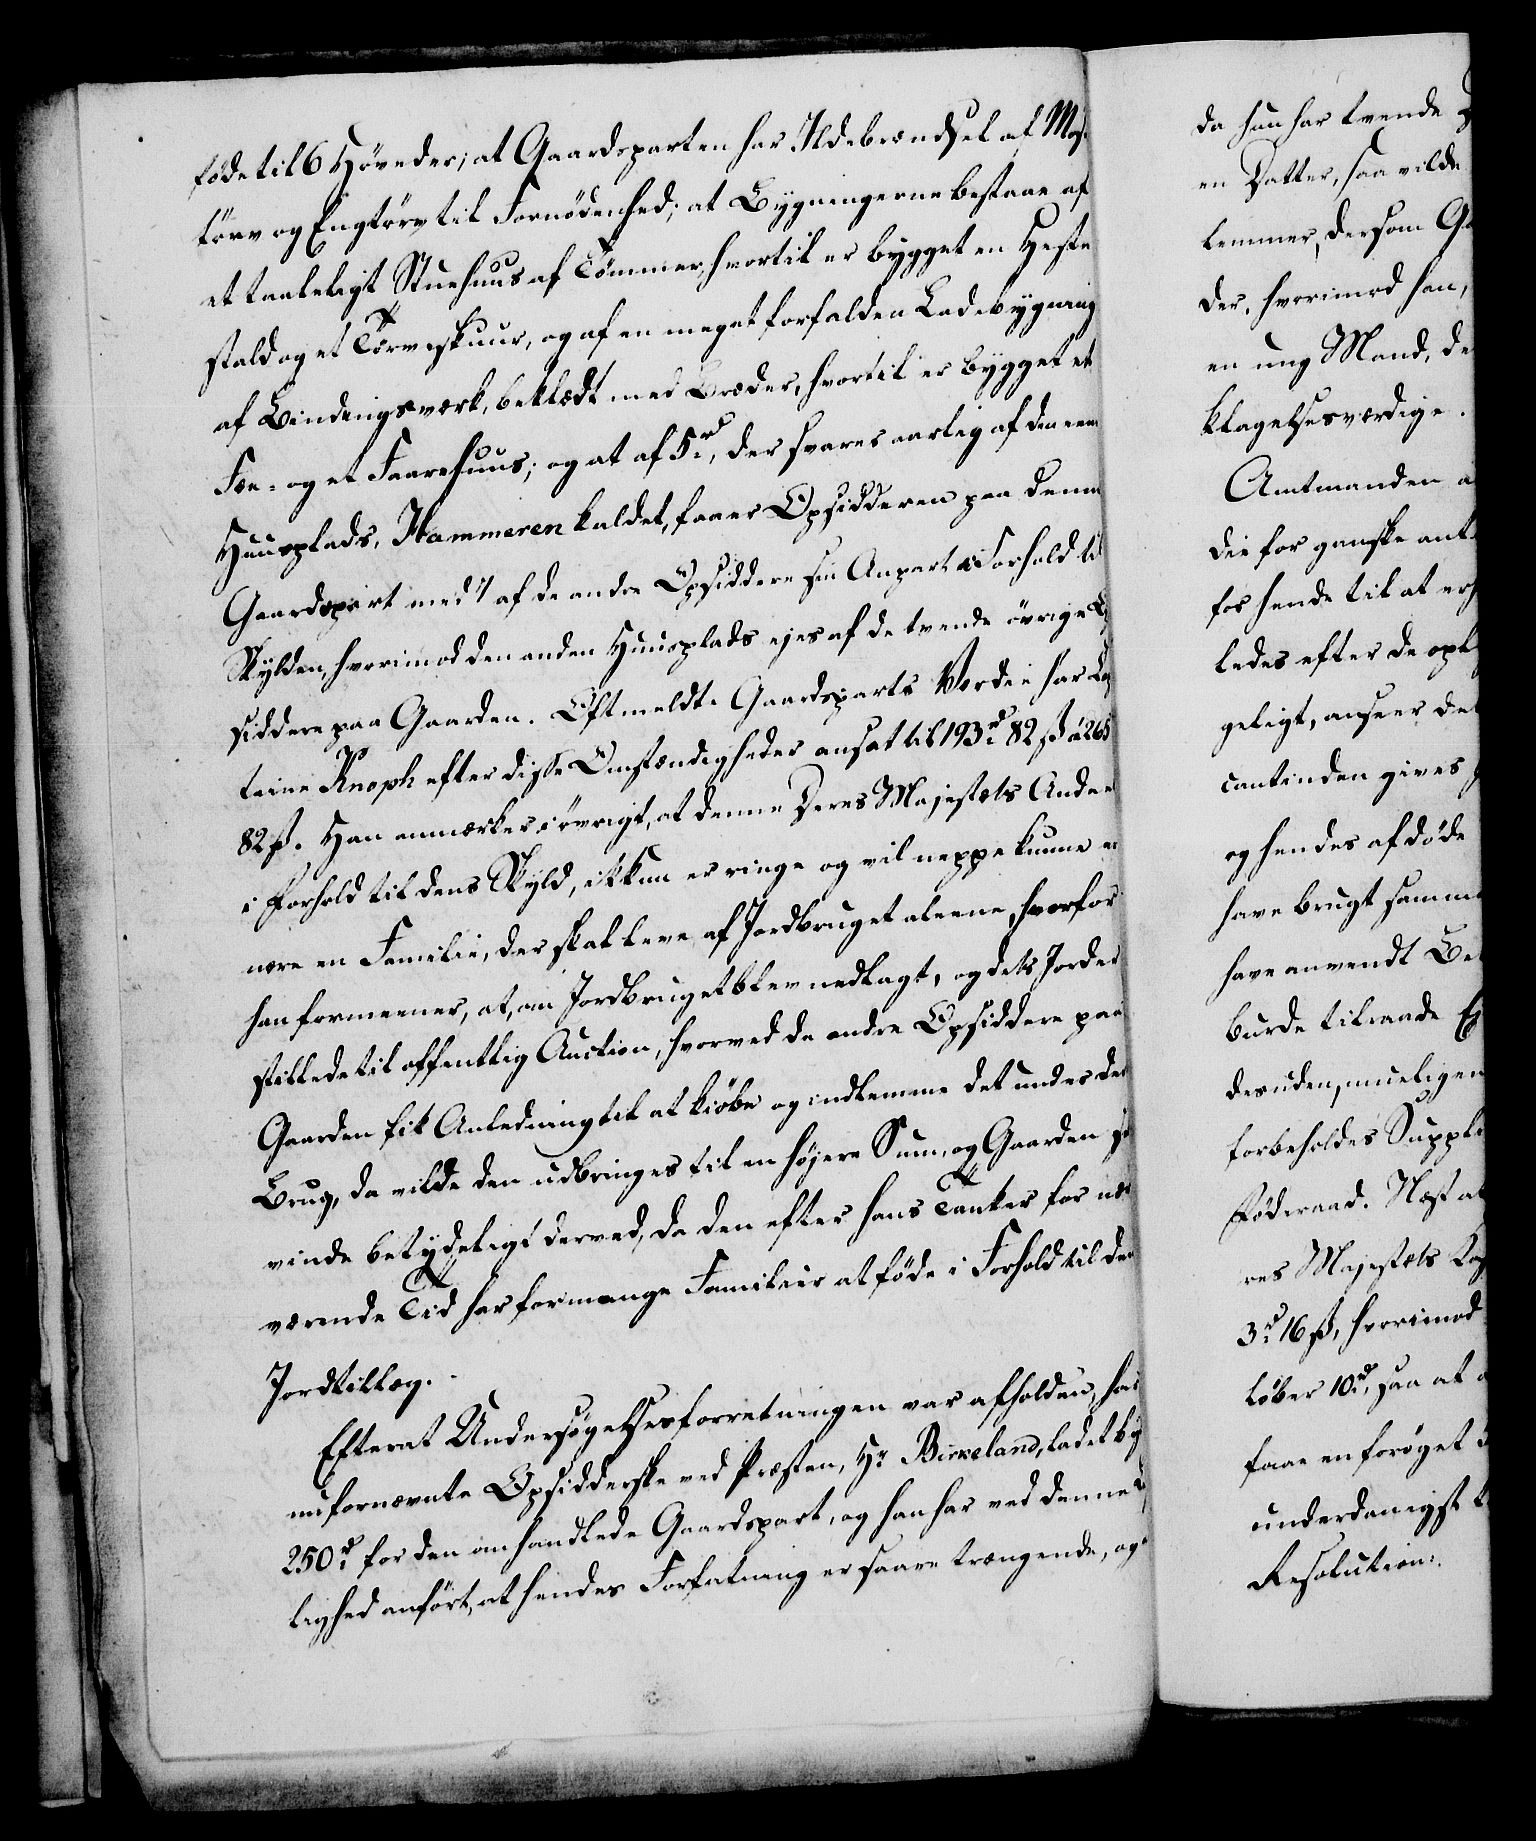 föde til 6 Höveder; at Gaardsparten har Ildebrændsel af Mose
törv og Engtörv til Fornödenhed; at Bygningerne bestaae af
et taaleligt Stuehuus af Tömmer, hvortil er bygget en Heste
stald og et Törveskuur, og af en meget forfalden Ladebygning
af Bindingsværk, beklædt med Bræder, hvortil er bygget et
Fæe- og et Faarehuus; og at af 5 rd, der svares aarlig af den eene
Huusplads, Hammeren kaldet, faaer Opsidderen paa denne
Gaardspart med 1 af de andre Opsiddere sin Anpart i Forhold til
Skylden, hvorimod den anden Huusplads ejes af de tvende övrige Op
siddere paa Gaarden. Oftmeldte Gaardsparts Værdie har Cap
taine Knoph efter disse Omstændigheder ansat til 193 rd 82 ß à 265
82 ß. Han anmærker i övrigt, at denne Deres Majestæts Andeel
i Forhold til dens Skyld, ikkun er ringe og vil neppe kunne er
nære en Familie, der skal leve af Jordbruget aleene, hvorfor
han formeener, at, om Jordbruget blev nedlagt, og dets Jorder
stillede til offentlig Auction, hvorved de andre Opsiddere paa
Gaarden fik Anledning til at kiöbe og indlemme det under deres
Brug, da vilde den udbringes til en höjere Sum, og Gaarden
vinde betydeligt derved, da den efter hans Tanker for nær
værende Tid har for mange Familier at föde i Forhold til dens
Jordtillæg.
Efterat Undersögelsesforretningen var afholden, har
nufornævnte Opsidderske ved Præsten, Hr Birkeland, ladet byde
250 rd for den omhandlede Gaardspart, og han har ved denne
lighed anfört, at hendes Forfatning er saare trængende, og
da hun har tvende
en Datter, saa vilde
lemmer, dersom Ga
der, hvorimod han,
en ung Mand, de
klagelsesværdige.
Amtmanden a
die for ganske ant
for hende til at er
ledes efter de opl
geligt, anseer de
cantinden gives
og hendes afdöde
have brugt samm
have anvendt Be
burde tilraade
desuden, mueligen
forbeholdes Suppli
Föderaad. Næst at
res Majestæts
3 rd 16 ß, hvorimod
löber 10 rd, saa at
faae en foröget
underdanigst
Resolution: